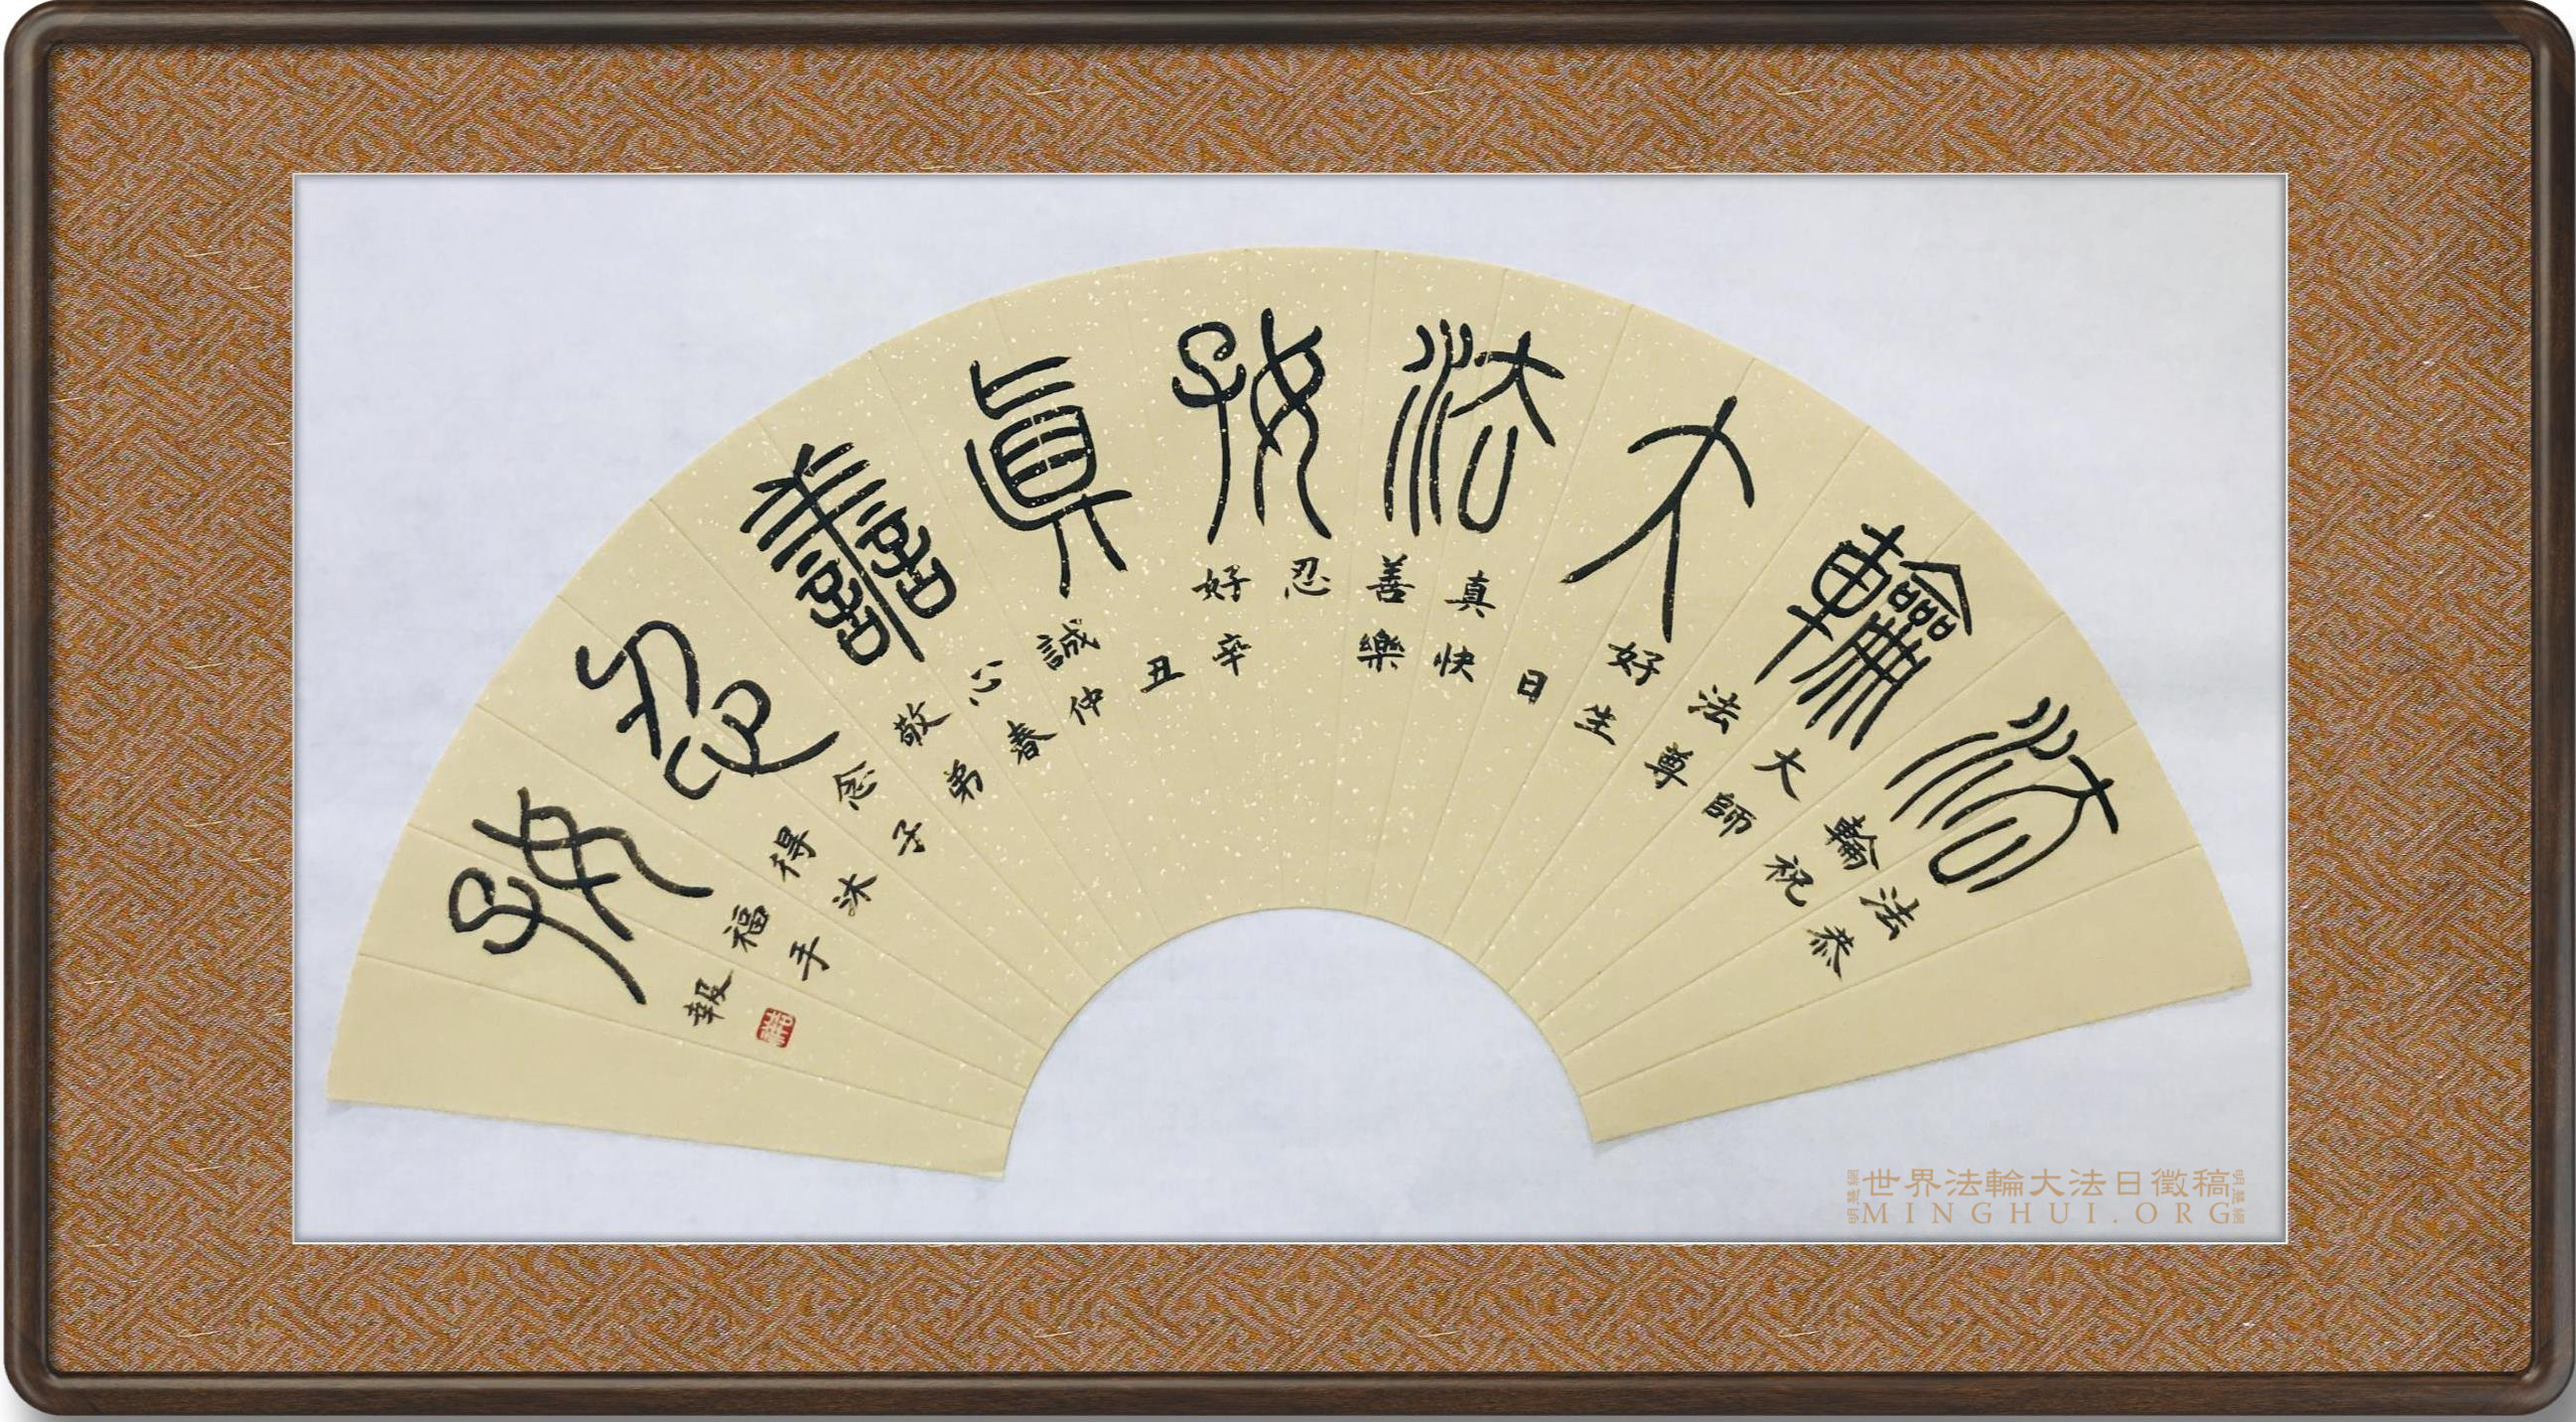 法輪大法好真善忍好
法輪大法好真善忍好誠心敬念得福報
恭祝師尊生日快樂辛丑仲春弟子沐手
世界法輪大法日徵稿
MINGHUI.ORG
明慧網
明慧網